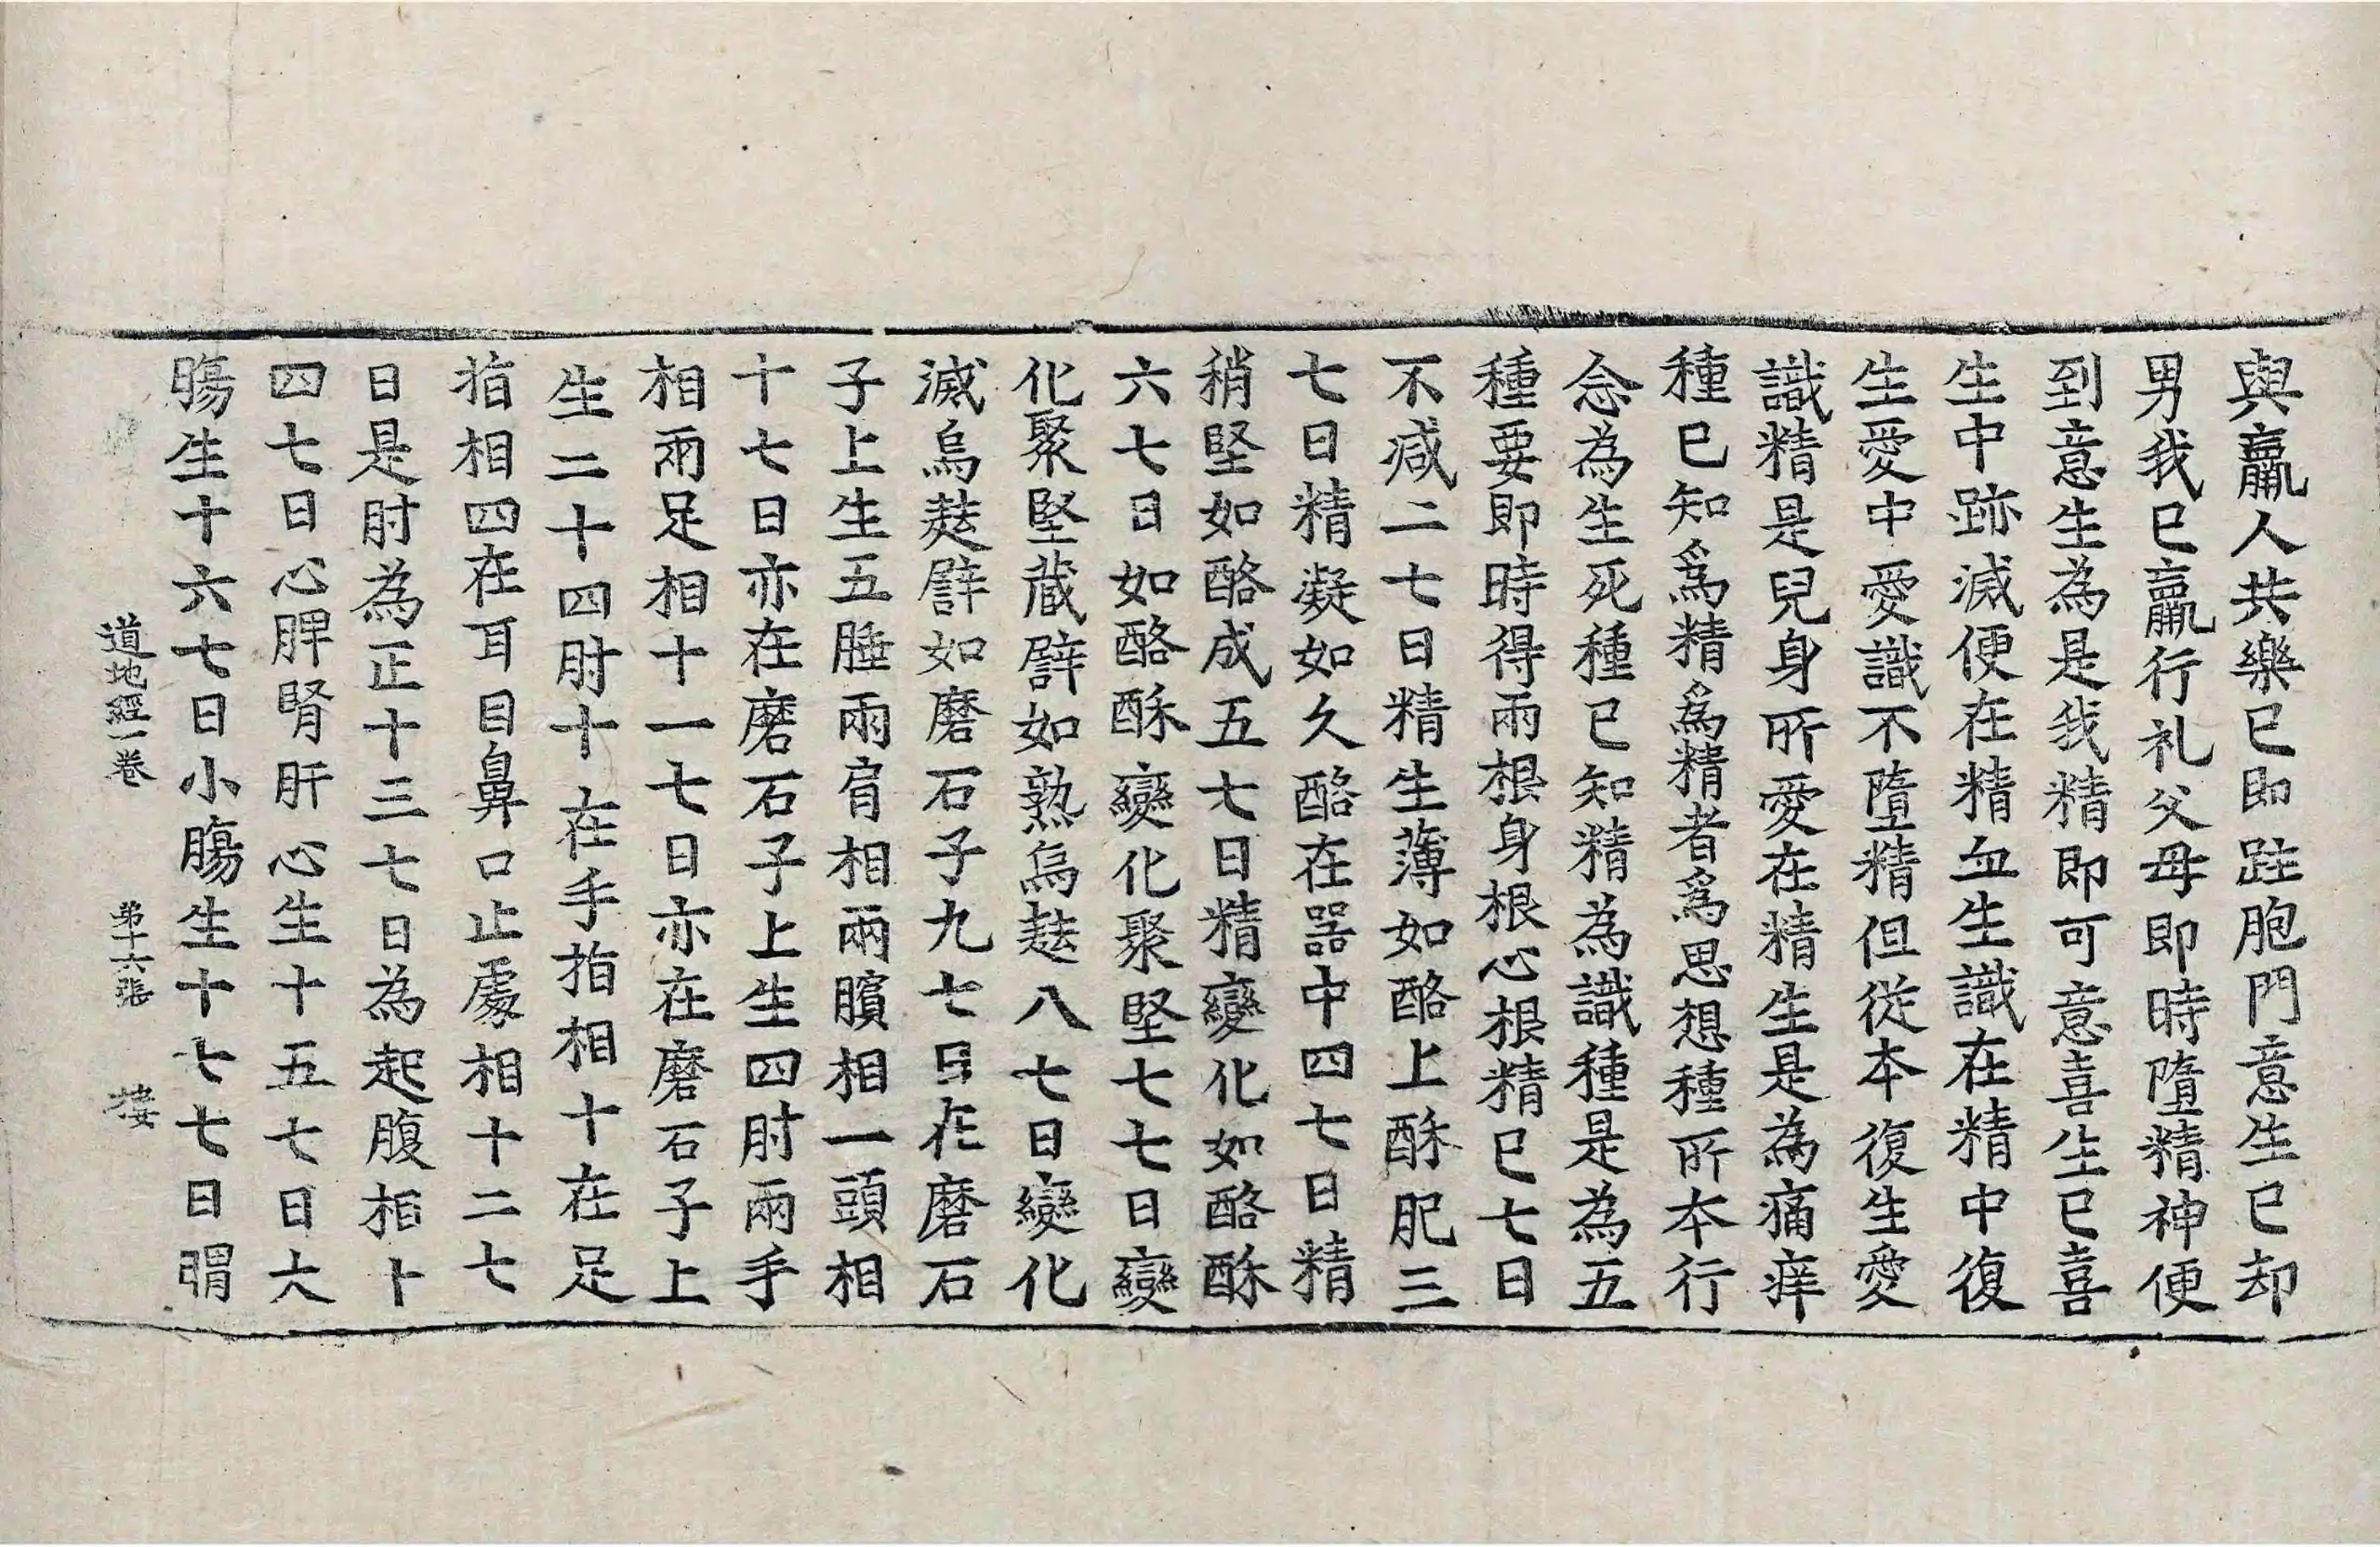 與羸人共樂已即跓胞門意生已却
男我已羸行礼父母即時墮精神便
到意生為是我精即可意喜生已喜
生中跡滅便在精血生識在精中復
生愛中愛識不墮精但從本復生愛
識精是兒身所愛在精生是為痛痒
種已知爲精爲精者爲思想種所本行
念為生死種已知精為識種是為五
種要即時得兩根身根心根精已七日
不减二七日精生薄如酪上酥肥三
七日精凝如久酪在器中四七日精
稍堅如酪成五七日精變化如酪酥
六七日如酪酥變化聚堅七七日變
化聚堅藏譬如熟烏麮八七日變化
滅烏麮譬如磨石子九七日在磨石
子上生五腄兩肩相兩臏相一頭相
十七日亦在磨石子上生四肘兩手
相兩足相十一七日亦在磨石子上
生二十四肘十在手指相十在足
指相四在耳目鼻口止處相十二七
日是肘為正十三七日為起腹相十
四七日心脾腎肝心生十五七日大
腸生十六七日小腸生十七七日胃
道地經一卷 第十六張 棲